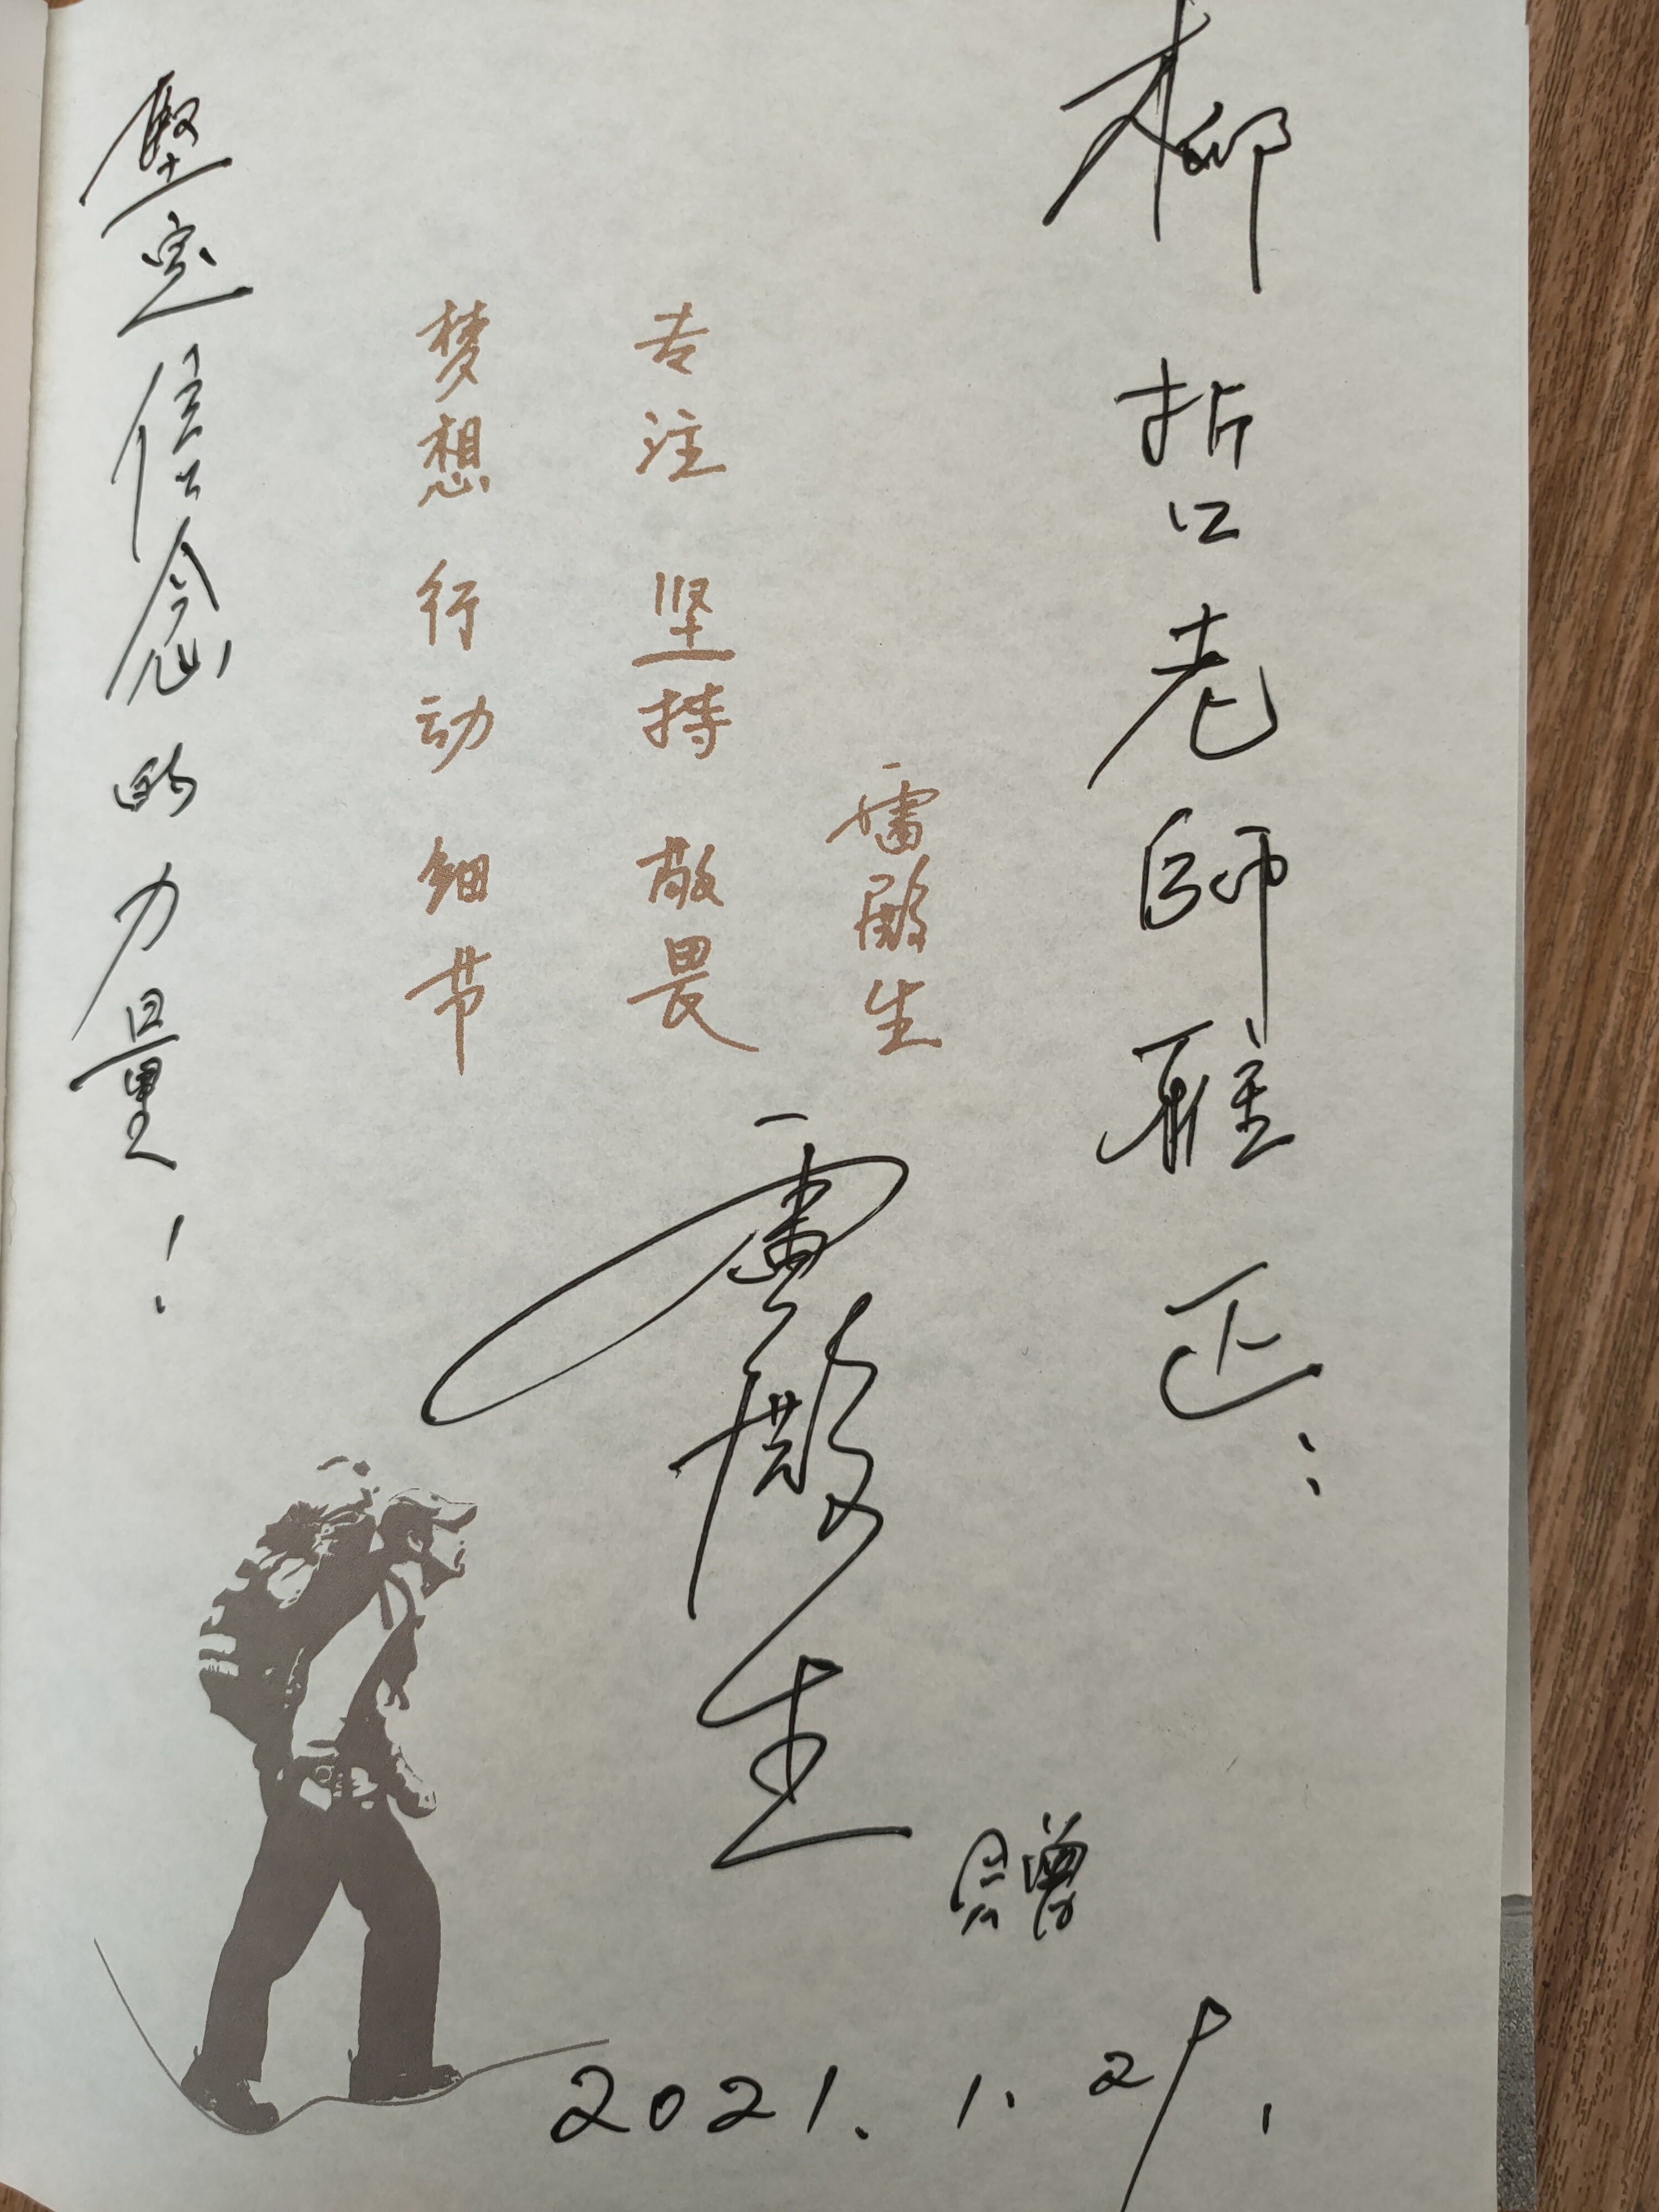 柳哲老師雅正:
雷殿生
专注 坚持 敬畏
梦想 行动 细节
堅定信念的力量!
雷殿生 贈
2021.1.29.